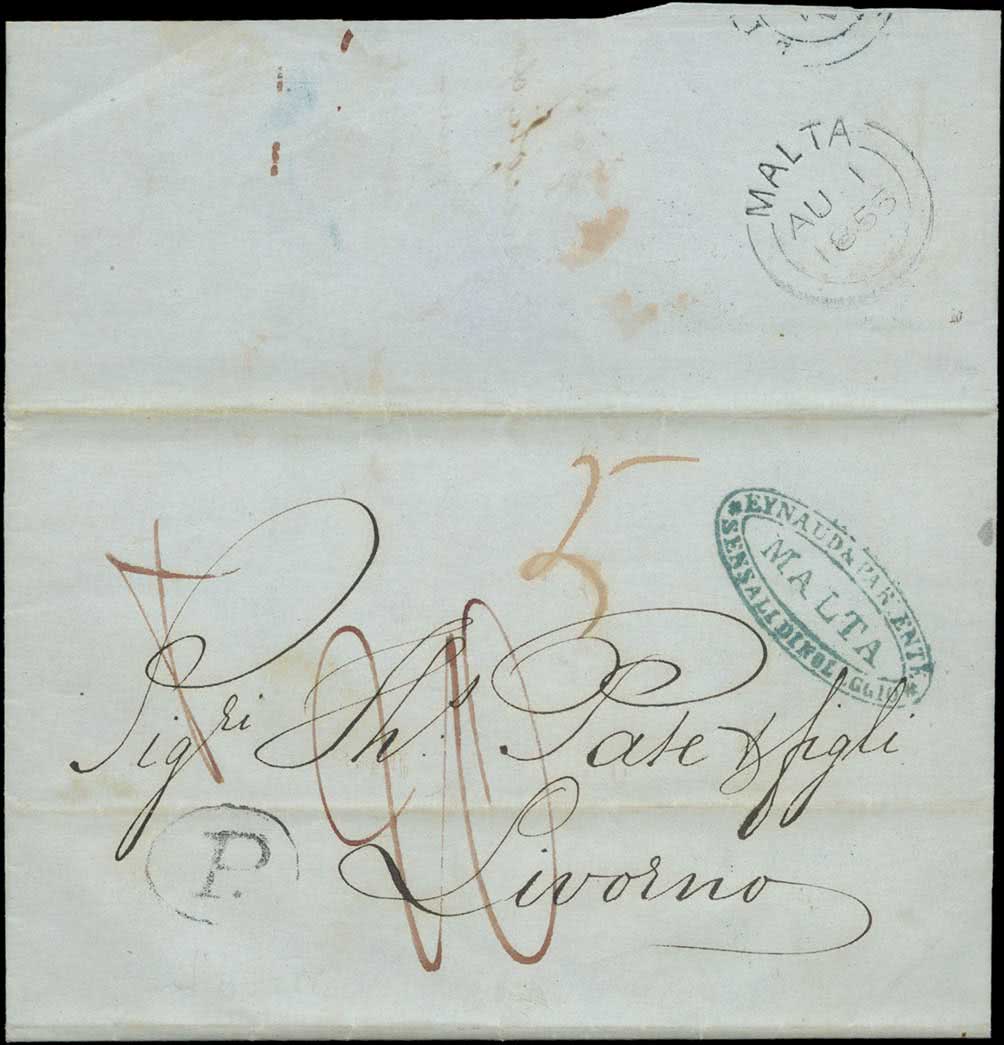 MALTA
AU 1
1855
5
EYNAUD & PARENTE
MALTA
SENSALI DI NOLEGGIO
Sigri Ths Pate & figli
P.
Livorno